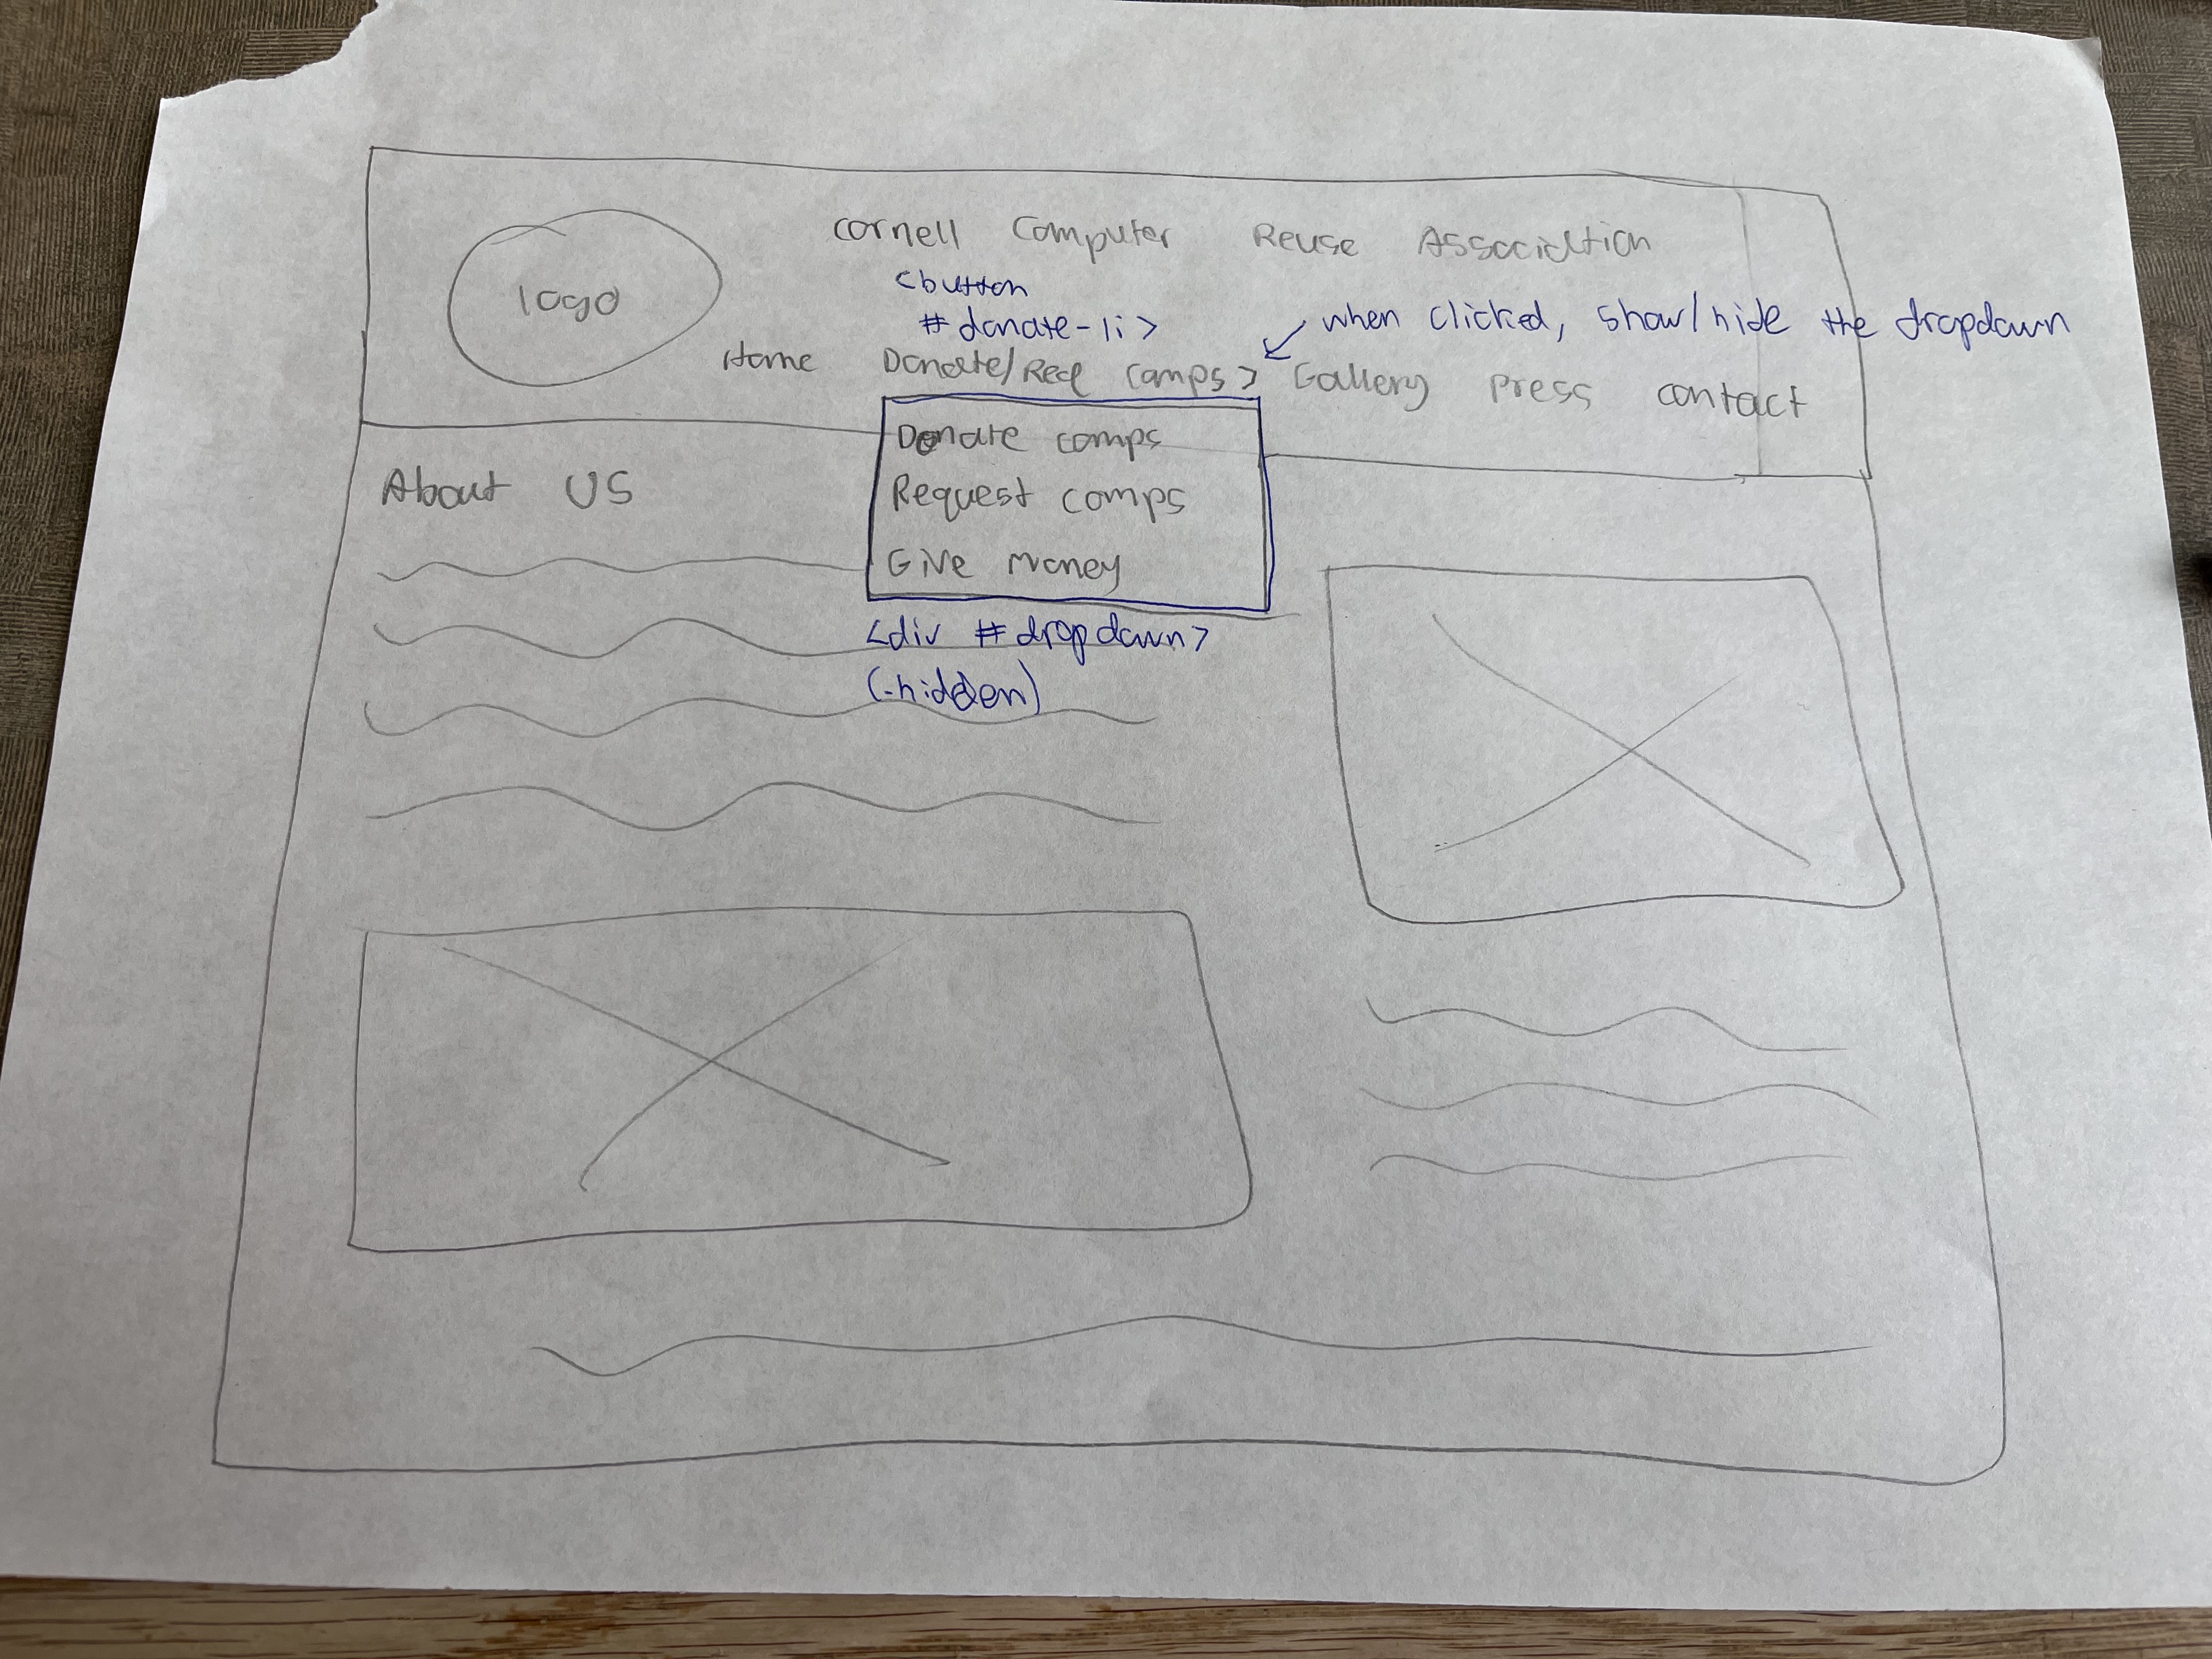 Cornell Computer Reuse Association
logo
<button
#donate-li>
when clicked, show/hide the dropdown
Home Donate/Req Comps > Gallery Press Contact
Donate comps
Request comps
Give Money
About US
<div #dropdown>
(.hidden)